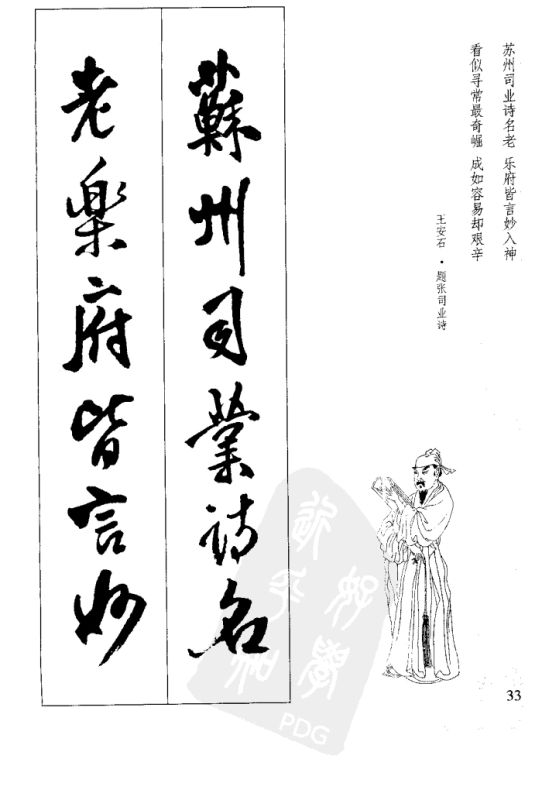 苏州司业诗名老 乐府皆言妙入神
看似寻常最奇崛 成如容易却艰辛
王安石·题张司业诗
蘇州司業詩名
老樂府皆言妙
33
PDG